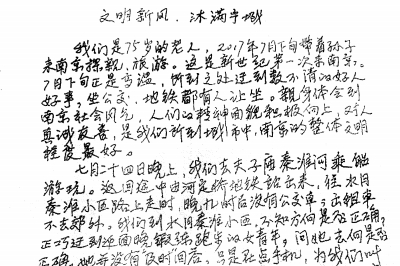 文明新风，沐满宁城
我们是75岁的老人，2017年7月下旬带着孙子
来南京探亲、旅游。这是新世纪第一次来南京。
7月下旬正是高温，所到之处遇到数不清的好人
好事，坐公交、地铁都有人让坐。亲身体会到
南京社会风气，人们的精神面貌积极向上，对人
真诚友善，是我们所到城市中，南京的整体文明
程度最好。
七月二十四日晚上，我们去夫子庙秦淮河乘船
游玩。返回途中由河定桥地铁站出来，往水月
秦淮小区路上走时，晚九时后没有公交车，出租车
不去郊外。我们到水月秦淮小区，不知方向是否正确，
正巧遇到迎面晚锻练跑步的女青年，问她去向是否
正确，她并没有及时回答，只是点手机，为我们叫